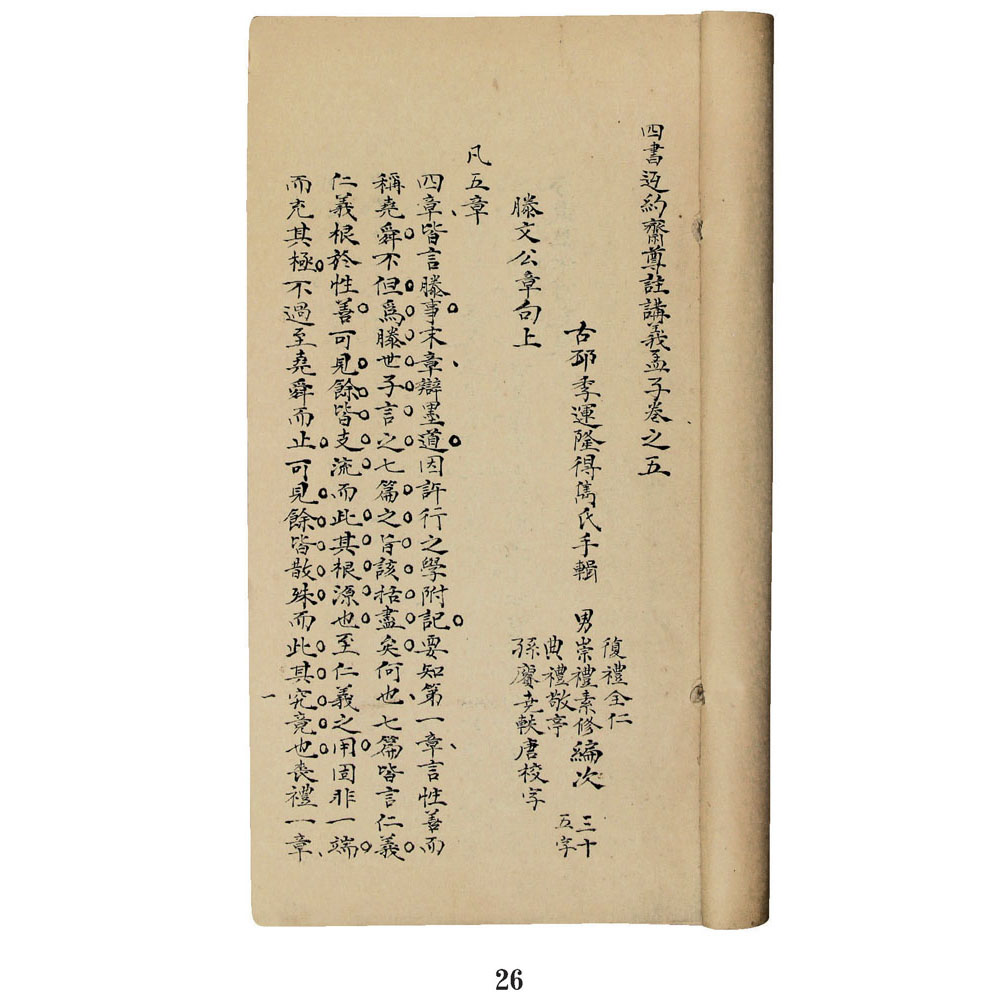 四書返約齋尊註講義孟子卷之五
古邳李運隆得雋氏手輯
復禮全仁
男崇禮素修編次
典禮敬亭
孫賡堯軼唐校字
三十
五字
滕文公章句上
凡五章
四章皆言滕事末章辯墨道因許行之學附記要知第一章言性善而
稱堯舜不但爲滕世子言之七篇之旨該括盡矣何也七篇皆言仁義
仁義根於性善可見餘皆支流而此其根源也至仁義之用固非一端
而充其極不過至堯舜而止可見餘皆散殊而此其究竟也喪禮一章
一
26